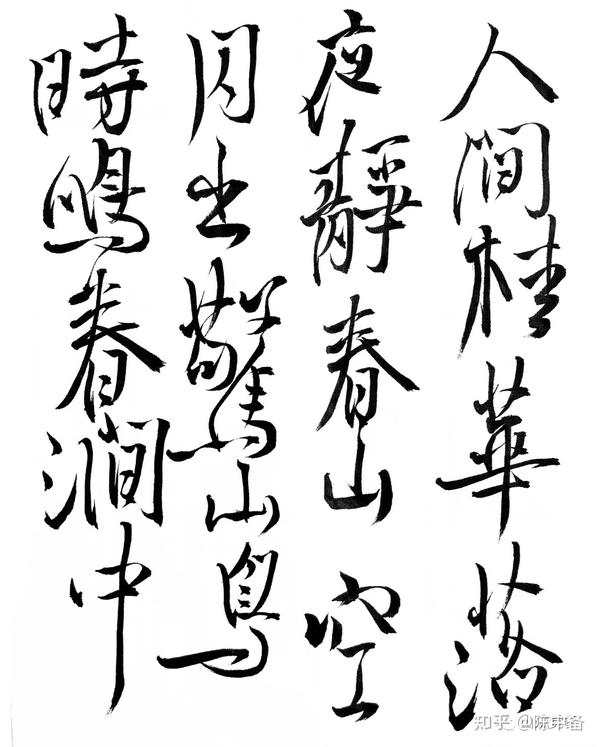 人間桂華落
夜靜春山空
月出驚山鳥
時鳴春澗中
知乎 @陈靖备